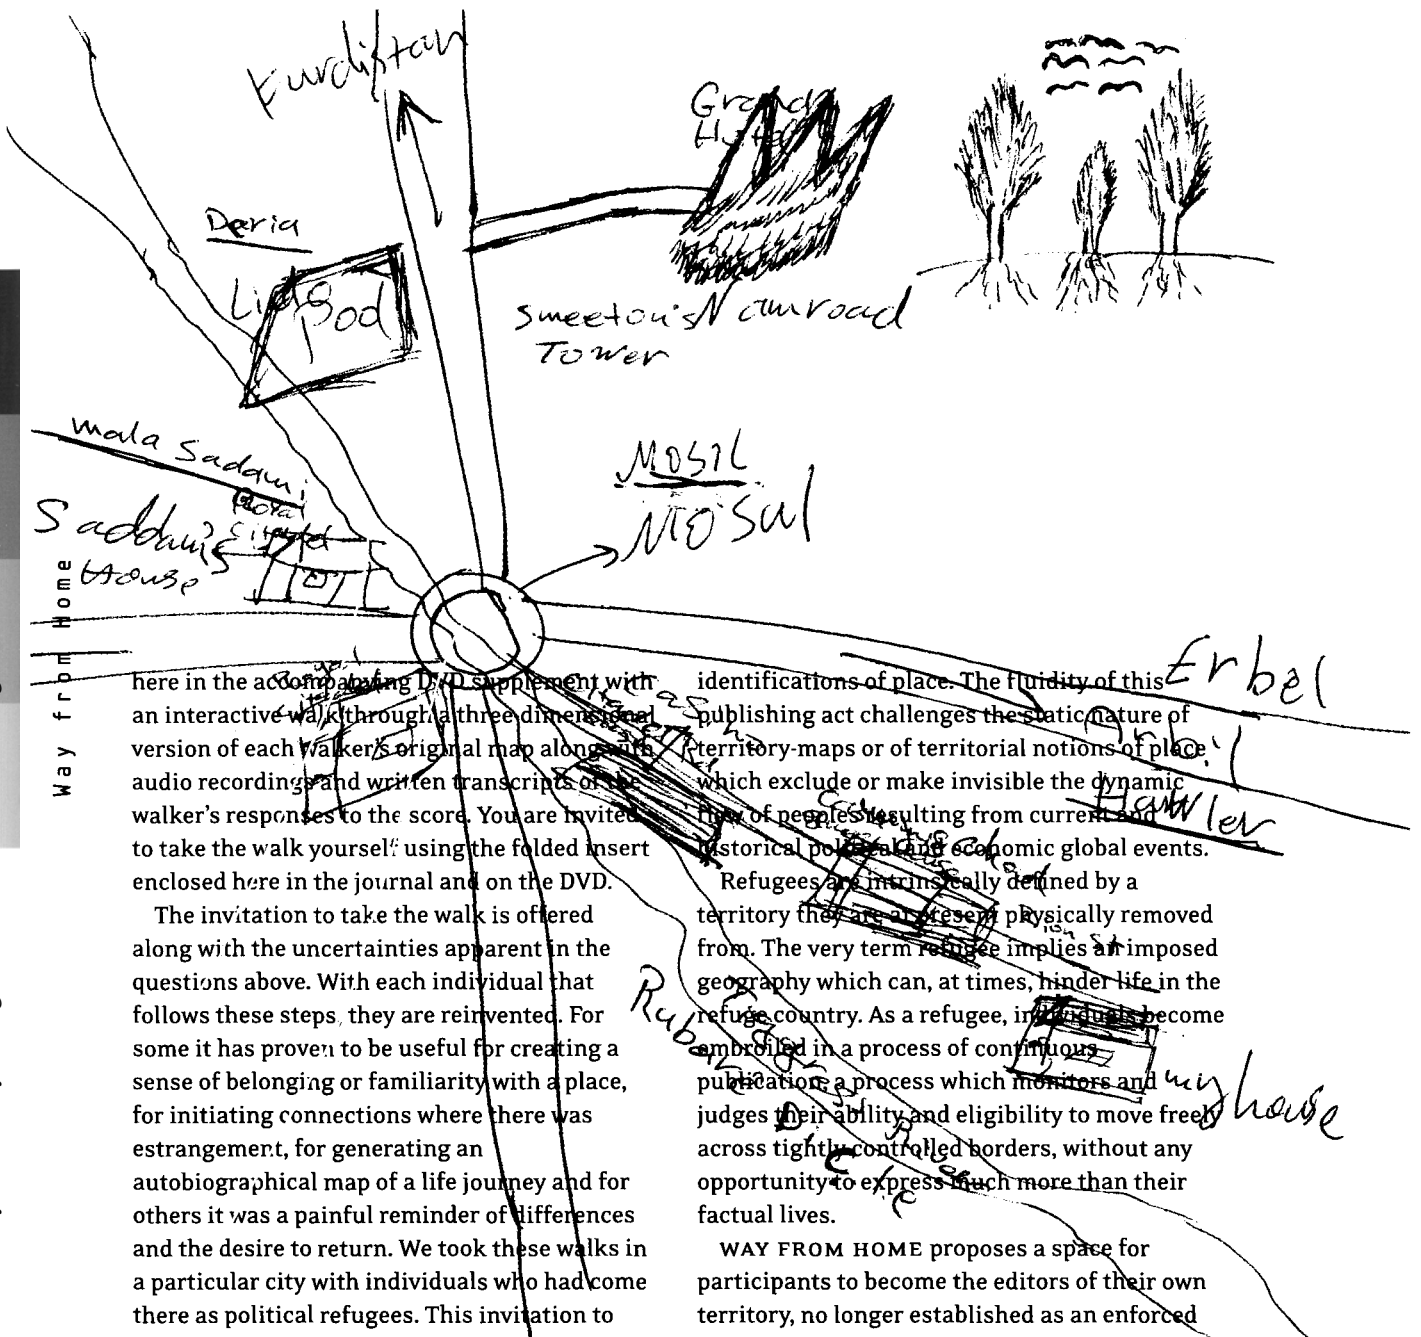 Kurdistan
Grand
Hotel
Daria
Lido
Pool
Smeeton's Namroad
Tower
mala Sadami
Saddam's
House
MOSIL
MOSUL
Way from Home
Erbel
Arbil
Hawler
my house
Tigres River
Rubar
Dicle
here in the accompanying DVD supplement with
an interactive walk through a three dimensional
version of each walker's original map along with
audio recordings and written transcripts of the
walker's responses to the score. You are invited
to take the walk yourself using the folded insert
enclosed here in the journal and on the DVD.
The invitation to take the walk is offered
along with the uncertainties apparent in the
questions above. With each individual that
follows these steps, they are reinvented. For
some it has proven to be useful for creating a
sense of belonging or familiarity with a place,
for initiating connections where there was
estrangement, for generating an
autobiographical map of a life journey and for
others it was a painful reminder of differences
and the desire to return. We took these walks in
a particular city with individuals who had come
there as political refugees. This invitation to
identifications of place. The fluidity of this
publishing act challenges the static nature of
territory-maps or of territorial notions of place
which exclude or make invisible the dynamic
flow of peoples resulting from current and
historical political and economic global events.
Refugees are intrinsically defined by a
territory they are at present physically removed
from. The very term refugee implies an imposed
geography which can, at times, hinder life in the
refuge country. As a refugee, individuals become
embroiled in a process of continuous
publication, a process which monitors and
judges their ability and eligibility to move freely
across tightly controlled borders, without any
opportunity to express much more than their
factual lives.
WAY FROM HOME proposes a space for
participants to become the editors of their own
territory, no longer established as an enforced